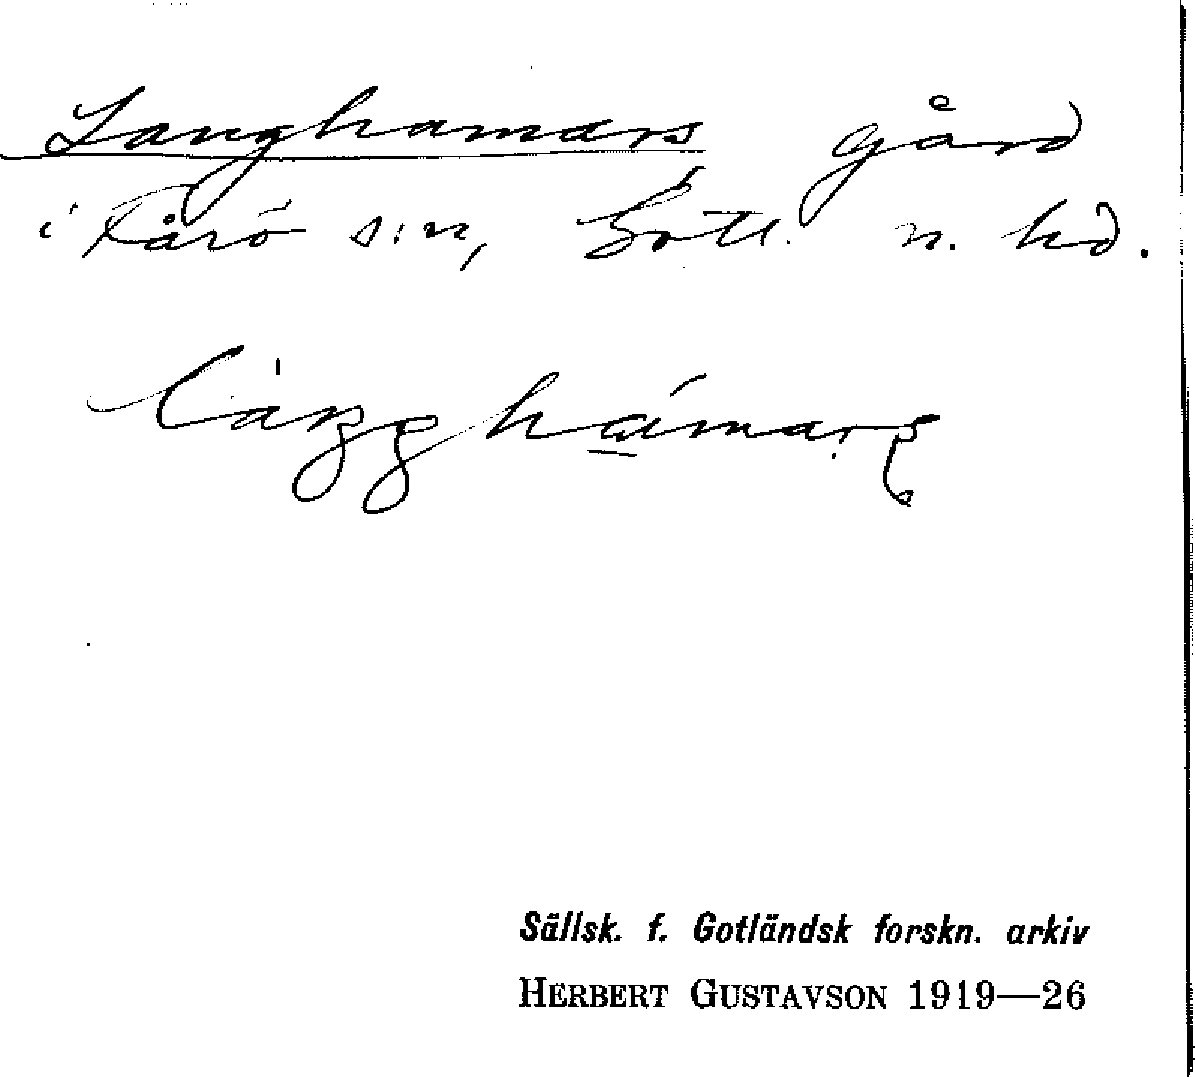 Langhamars gård
i Fårö s:n, Gotl. n. hd.
Sällsk. f. Gotländsk forskn. arkiv
HERBERT GUSTAVSON 1919—26